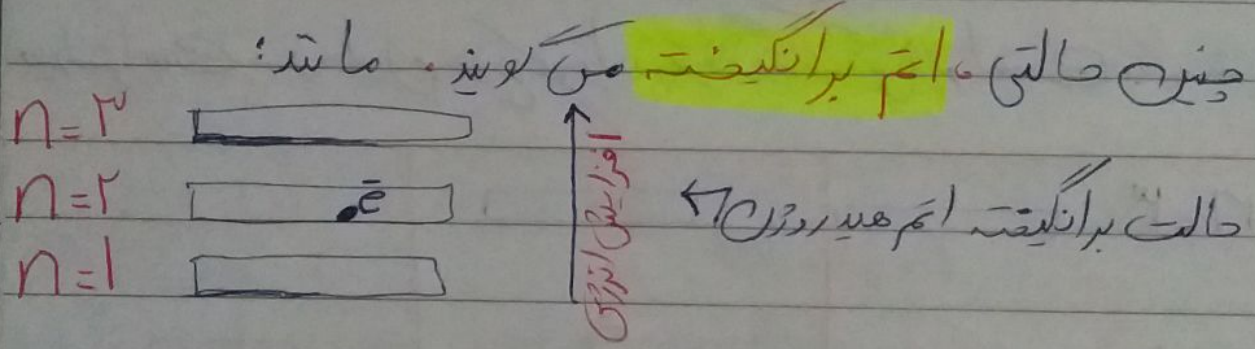 چنین حالتی، اتم برانگیخته می گویند. مانند:
n=۳
n=۲ e⁻
n=1
افزایش انرژی
حالت برانگیخته اتم هیدروژن